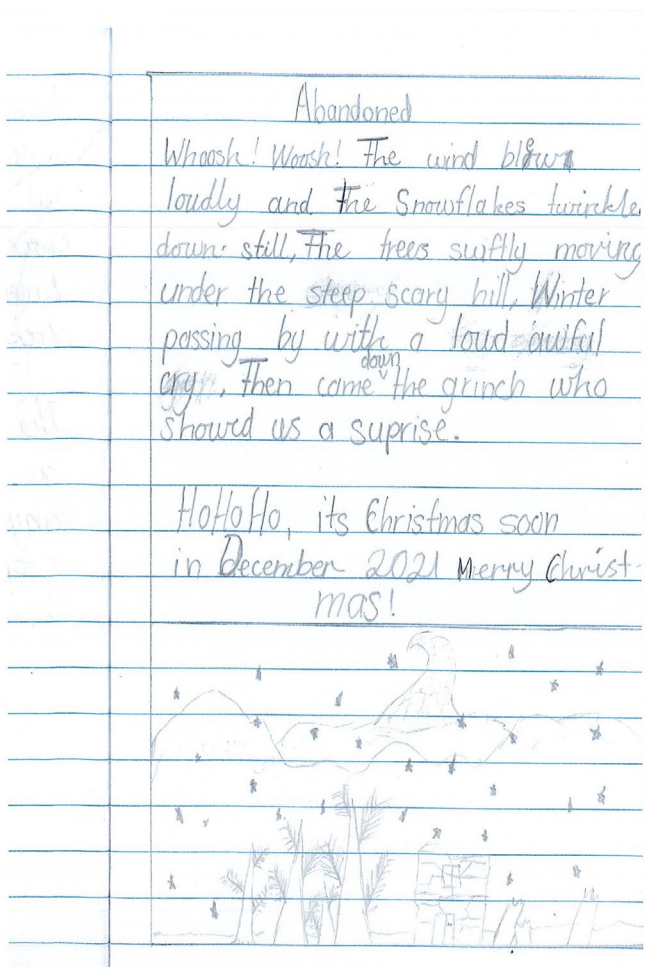 Abandoned
Whoosh! Woosh! The wind blown
loudly and the Snowflakes twinkle
down. still, The trees swiftly moving
under the steep scary hill, Winter
passing by with a loud awiful
cry, Then came down the grinch who
showrd us a suprise.
HoHoHo, its Christmas soon
in December 2021 Merry Christ-
mas!